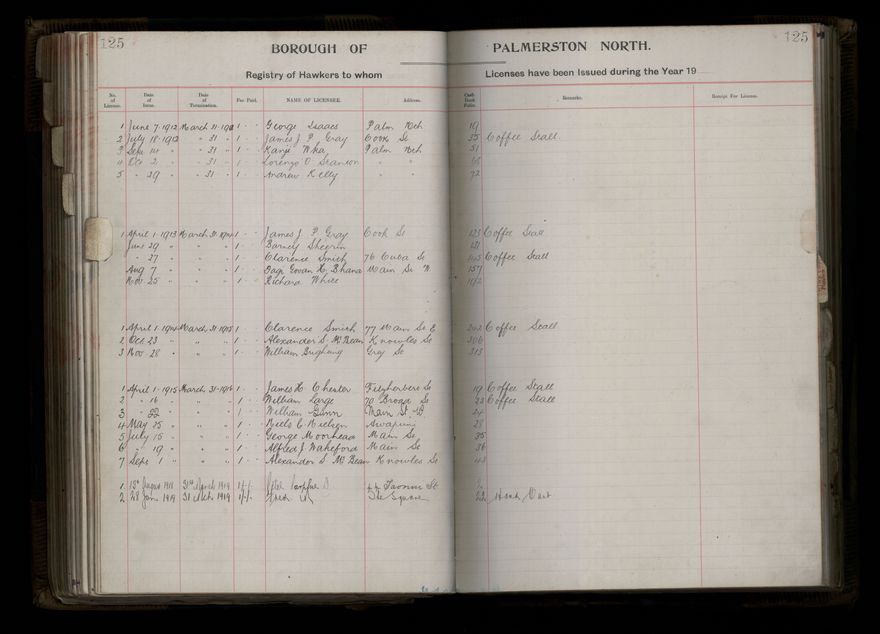 125
125
BOROUGH OF PALMERSTON NORTH.
Registry of Hawkers to whom Licenses have been Issued during the Year 19
No. of License. Date of Issue. Date of Termination. Fee Paid. NAME OF LICENSEE. Address. Cash Book Folio. Remarks. Receipt For License.
1 June 7-1912 March 31-1913 1 - - George Isaacs Palm Nth 19
2 July 18-1912 " 31 " 1 - - James J. P. Gray Cook St 35 Coffee Stall
3 Sept " 31 " 1 - - Kanji Palm Nth 51
4 Oct 2 " 31 " 1 - - Lorenzo O Stanton " "
5 " 29 " 31 " 1 - - Andrew Kelly " " 72
1 April 1-1913 March 31-1914 1 - - James J. P Gray Cook St 123 Coffee Stall
June 29 " " " 1 - - Barney Sheerin 131
" 27 " " " 1 - - Clarence Smith 76 Cuba St 145 Coffee Stall
Aug 7 " " " 1 - - Govan Bhana Main St W 157
Nov 25 " " " 1 - - Richard White
1 April 1-1914 March 31-1915 1 - - Clarence Smith 77 Main St E 242 Coffee Stall
2 Oct 23 " " " 1 - - Alexander S McBean Knowles St 306
3 Nov 28 " " " 1 - - William Gray St 313
1 April 1-1915 March 31-1916 1 - - James H Chester Fitzherbert St 19 Coffee Stall
2 " 16 " " " 1 - - William Large 70 Broad St 22 Coffee Stall
3 " 22 " " " 1 - - William Gunn Main St W 24
4 May 25 " " " 1 - - Niels C Nielsen Awapuni 28
5 July 15 " " " 1 - - George Moorhead Main St 35
6 " 19 " " " 1 - - Alfred J Wakeford Main St 36
7 Sept 1 " " " 1 - - Alexander S McBean Knowles St 43
1 31st March 1919 St
2 28 Jany 1919 31 Mch 1919 The Square 22 Hand Cart